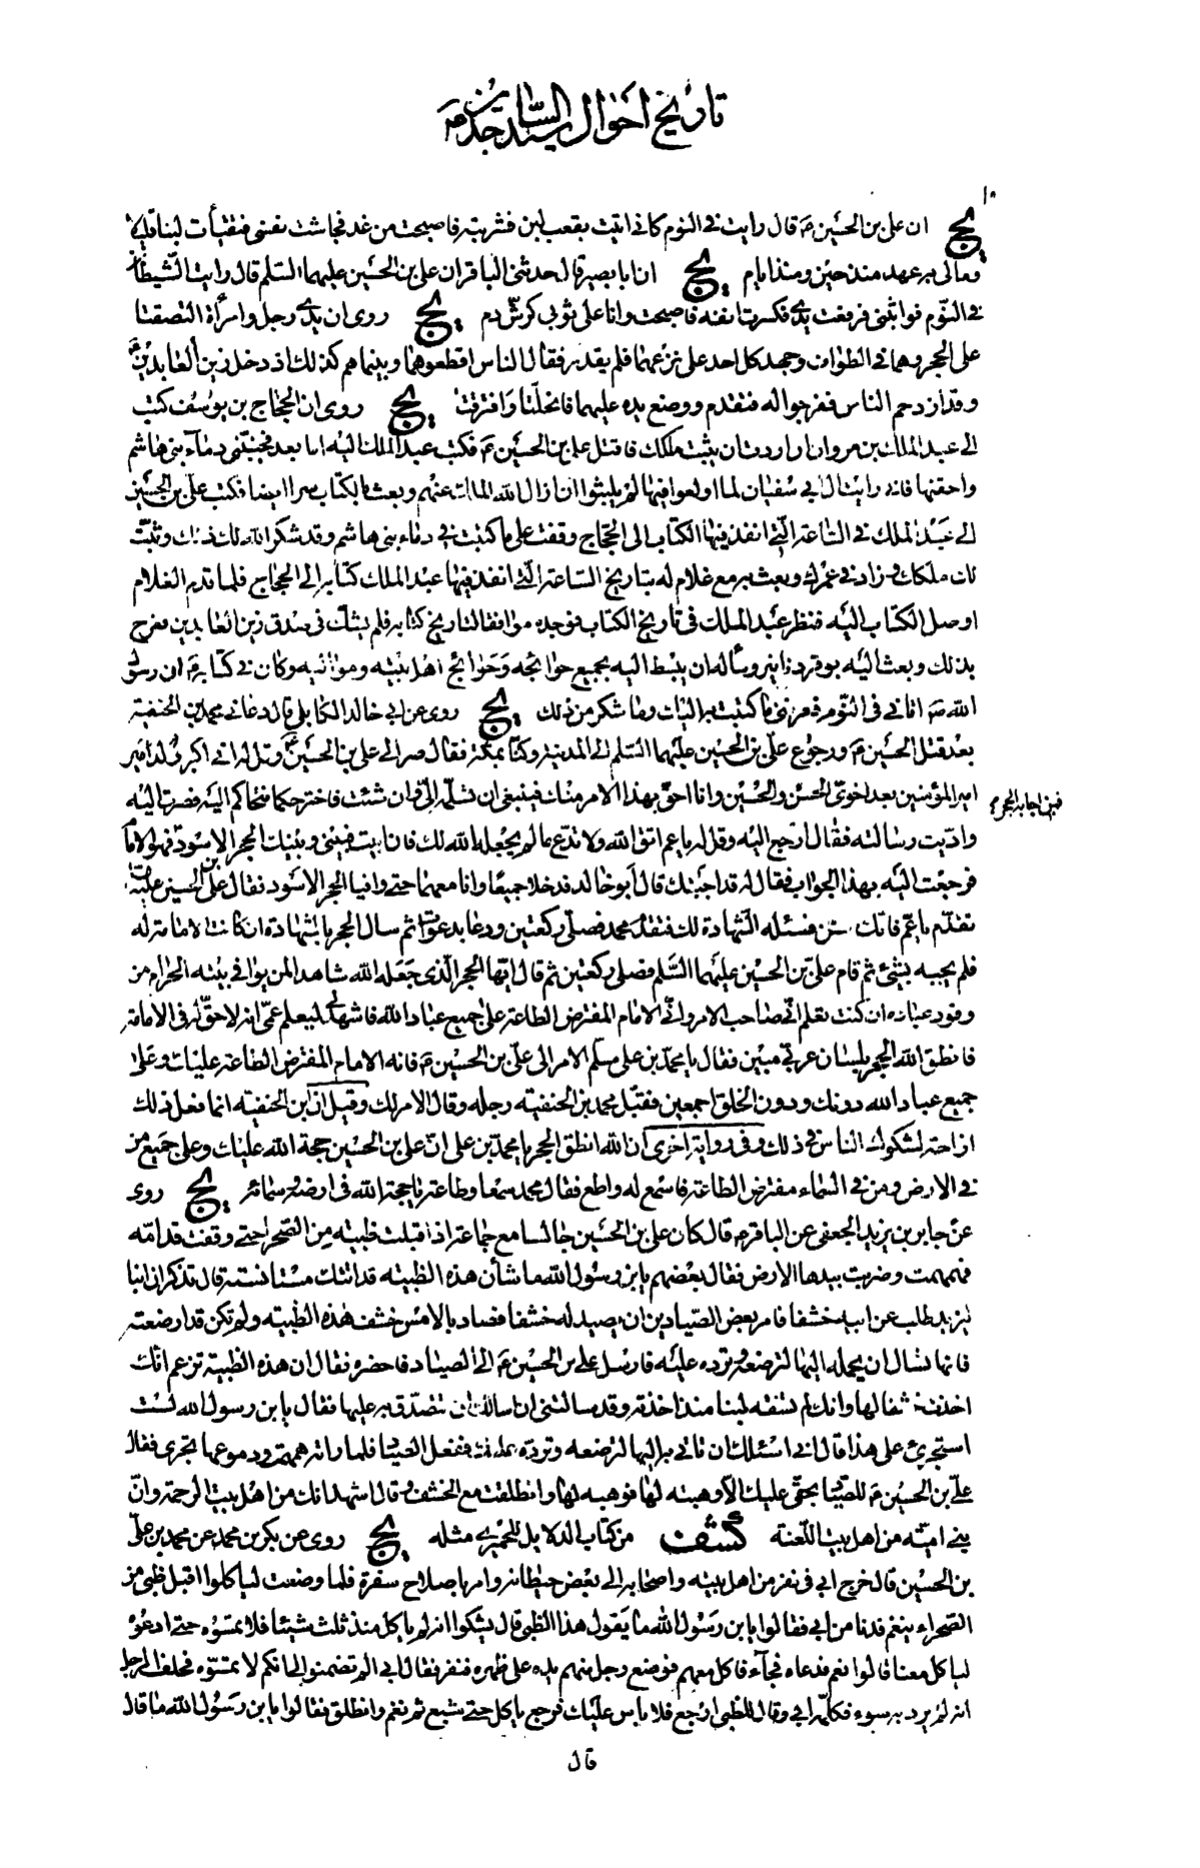 تاريخ احوال سيد الساجدين ع
١٠
يج ان على بن الحسين ع قال رايت فى النوم كانى اتيت بقعب لبن فشربته فاصبحت من غد فجاشت نفسى فتقيأت لبنا قليلا
ومالى به عهد منذ حين ومنذ ايام يج ان ابا بصير قال حدثنى الباقر ان على بن الحسين عليهما السلم قال رايت الشيطان
فى النوم فواثبنى فرفعت يدى فكسرت انفه فاصبحت وانا على ثوبى كرش دم يج روى ان يدى رجل وامرأة التصقتا
على الحجر وهما فى الطواف وجهد كل احد على نزعهما فلم يقدر فقال الناس اقطعوهما وبينما هم كذلك اذ دخل زين العابدين ع
وقد ازدحم الناس ففرجوا له فتقدم ووضع يده عليهما فانحلتا وافترقتا يج روى ان الحجاج بن يوسف كتب
الى عبد الملك بن مروان ان اردت ان يثبت ملكك فاقتل على بن الحسين ع فكتب عبد الملك اليه اما بعد فجنبنى دماء بنى هاشم
واحقنها فانى رايت ال ابى سفيان لما اولعوا فيها لم يلبثوا ان ازال الله الملك عنهم وبعث بالكتاب سرا ايضا فكتب على بن الحسين
الى عبد الملك فى الساعة التى انفذ فيها الكتاب الى الحجاج وقفت على ما كتبت فى دماء بنى هاشم وقد شكر الله لك ذلك وثبت
لك ملكك وزاد فى عمرك وبعث به مع غلام له بتاريخ الساعة التى انفذ فيها عبد الملك كتابه الى الحجاج فلما قدم الغلام
اوصل الكتاب اليه فنظر عبد الملك فى تاريخ الكتاب فوجده موافقا لتاريخ كتابه فلم يشك فى صدق زين العابدين ففرح
بذلك وبعث اليه بوقر دنانير وسأله ان يبسط اليه بجميع حوائجه وحوائج اهل بيته ومواليه وكان فى كتابه ع ان رسول
الله ص اتانى فى النوم فعرفنى ما كتبت به اليك وما شكر من ذلك يج روى عن ابى خالد الكابلى قال دعانى محمد بن الحنفية
بعد قتل الحسين ع ورجوع على بن الحسين عليهما السلم الى المدينة وكنا بمكة فقال صر الى على بن الحسين ع وقل له انى اكبر ولد امير
امير المؤمنين بعد اخوى الحسن والحسين وانا احق بهذا الامر منك فينبغى ان تسلمه الى وان شئت فاختر حكما نتحاكم اليه فصرت اليه
فى اجابة الحجر
واديت رسالته فقال ارجع اليه وقل له يا عم اتق الله ولا تدع ما لم يجعله الله لك فان ابيت فبينى وبينك الحجر الاسود
فرجعت اليه بهذا الجواب فقال له قد اجبتك قال ابو خالد فدخلا جميعا وانا معهما حتى وافيا الحجر الاسود فقال على بن الحسين
تقدم يا عم فانك اسن فسئله الشهادة لك فتقدم محمد فصلى ركعتين ودعا بدعوات ثم سال الحجر بالشهادة ان كانت الامامة له
فلم يجبه بشئ ثم قام على بن الحسين عليهما السلم فصلى ركعتين ثم قال ايها الحجر الذى جعله الله شاهدا لمن يوافى بيته الحرام من
وفود عباده ان كنت تعلم انى صاحب الامر وانى الامام المفترض الطاعة على جميع عباد الله فاشهد لى ليعلم عمى انه لا حق له فى الامامة
فانطق الله الحجر بلسان عربى مبين فقال يا محمد بن على سلم الامر الى على بن الحسين ع فانه الامام المفترض الطاعة عليك وعلى
جميع عباد الله دونك ودون الخلق اجمعين فقبل محمد بن الحنفية رجله وقال الامر لك وقيل ان ابن الحنفية انما فعل ذلك
ازاحة لشكوك الناس فى ذلك وفى رواية اخرى ان الله انطق الحجر يا محمد بن على ان على بن الحسين حجة الله عليك وعلى جميع من
فى الارض ومن فى السماء مفترض الطاعة فاسمع له واطع فقال محمد سمعا وطاعة يا حجة الله فى ارضه وسمائه يج روى
عن جابر بن يزيد الجعفى عن الباقر ع قال كان على بن الحسين جالسا مع جماعة اذ اقبلت ظبية من الصحراء حتى وقفت قدامه
فهمهمت وضربت بيدها الارض فقال بعضهم يا بن رسول الله ما شأن هذه الظبية قد اتتك مستانسة قال تذكر ان ابنا
ليزيد طلب عن ابيه خشفا فامر بعض الصيادين ان يصيد له خشفا فصاد بالامس خشف هذه الظبية ولم تكن قد ارضعته
فانها تسال ان يحمله اليها لترضعه وترده عليه فارسل على بن الحسين ع الى الصياد فاحضره فقال ان هذه الظبية تزعم انك
اخذت خشفا لها وانك لم تسقه لبنا منذ اخذته وقد سالتنى ان اسالك ان تتصدق به عليها فقال يا بن رسول الله لست
استجرئ على هذا قال انى اسئلك ان تاتى به اليها لترضعه وترده عليك ففعل الصياد فلما راته همهمت ودموعها تجرى فقال
على بن الحسين ع للصياد بحقى عليك الا وهبته لها فوهبه لها وانطلقت مع الخشف وقال اشهد انك من اهل بيت الرحمة وان
بنى امية من اهل بيت اللعنة كشف من كتاب الدلايل للحميرى مثله يج روى عن بكر بن محمد عن محمد بن على
بن الحسين قال خرج ابى فى نفر من اهل بيته واصحابه الى بعض حيطانه وامر باصلاح سفرة فلما وضعت لياكلوا اقبل ظبى من
الصحراء يتبغم فدنا من ابى فقالوا يا بن رسول الله ما يقول هذا الظبى قال يشكوا انه لم ياكل منذ ثلث شيئا فلا تمسوه حتى ادعوه
لياكل معنا قالوا نعم فدعاه فجاء فاكل معهم فوضع رجل منهم يده على ظهره فنفر فقال ابى الم تضمنوا لى انكم لا تمسوه فحلف الرجل
انه لم يرد به سوء فكلمه ابى وقال للظبى ارجع فلا باس عليك فرجع ياكل حتى شبع ثم تبغم وانطلق فقالوا يا بن رسول الله ما قال
قال